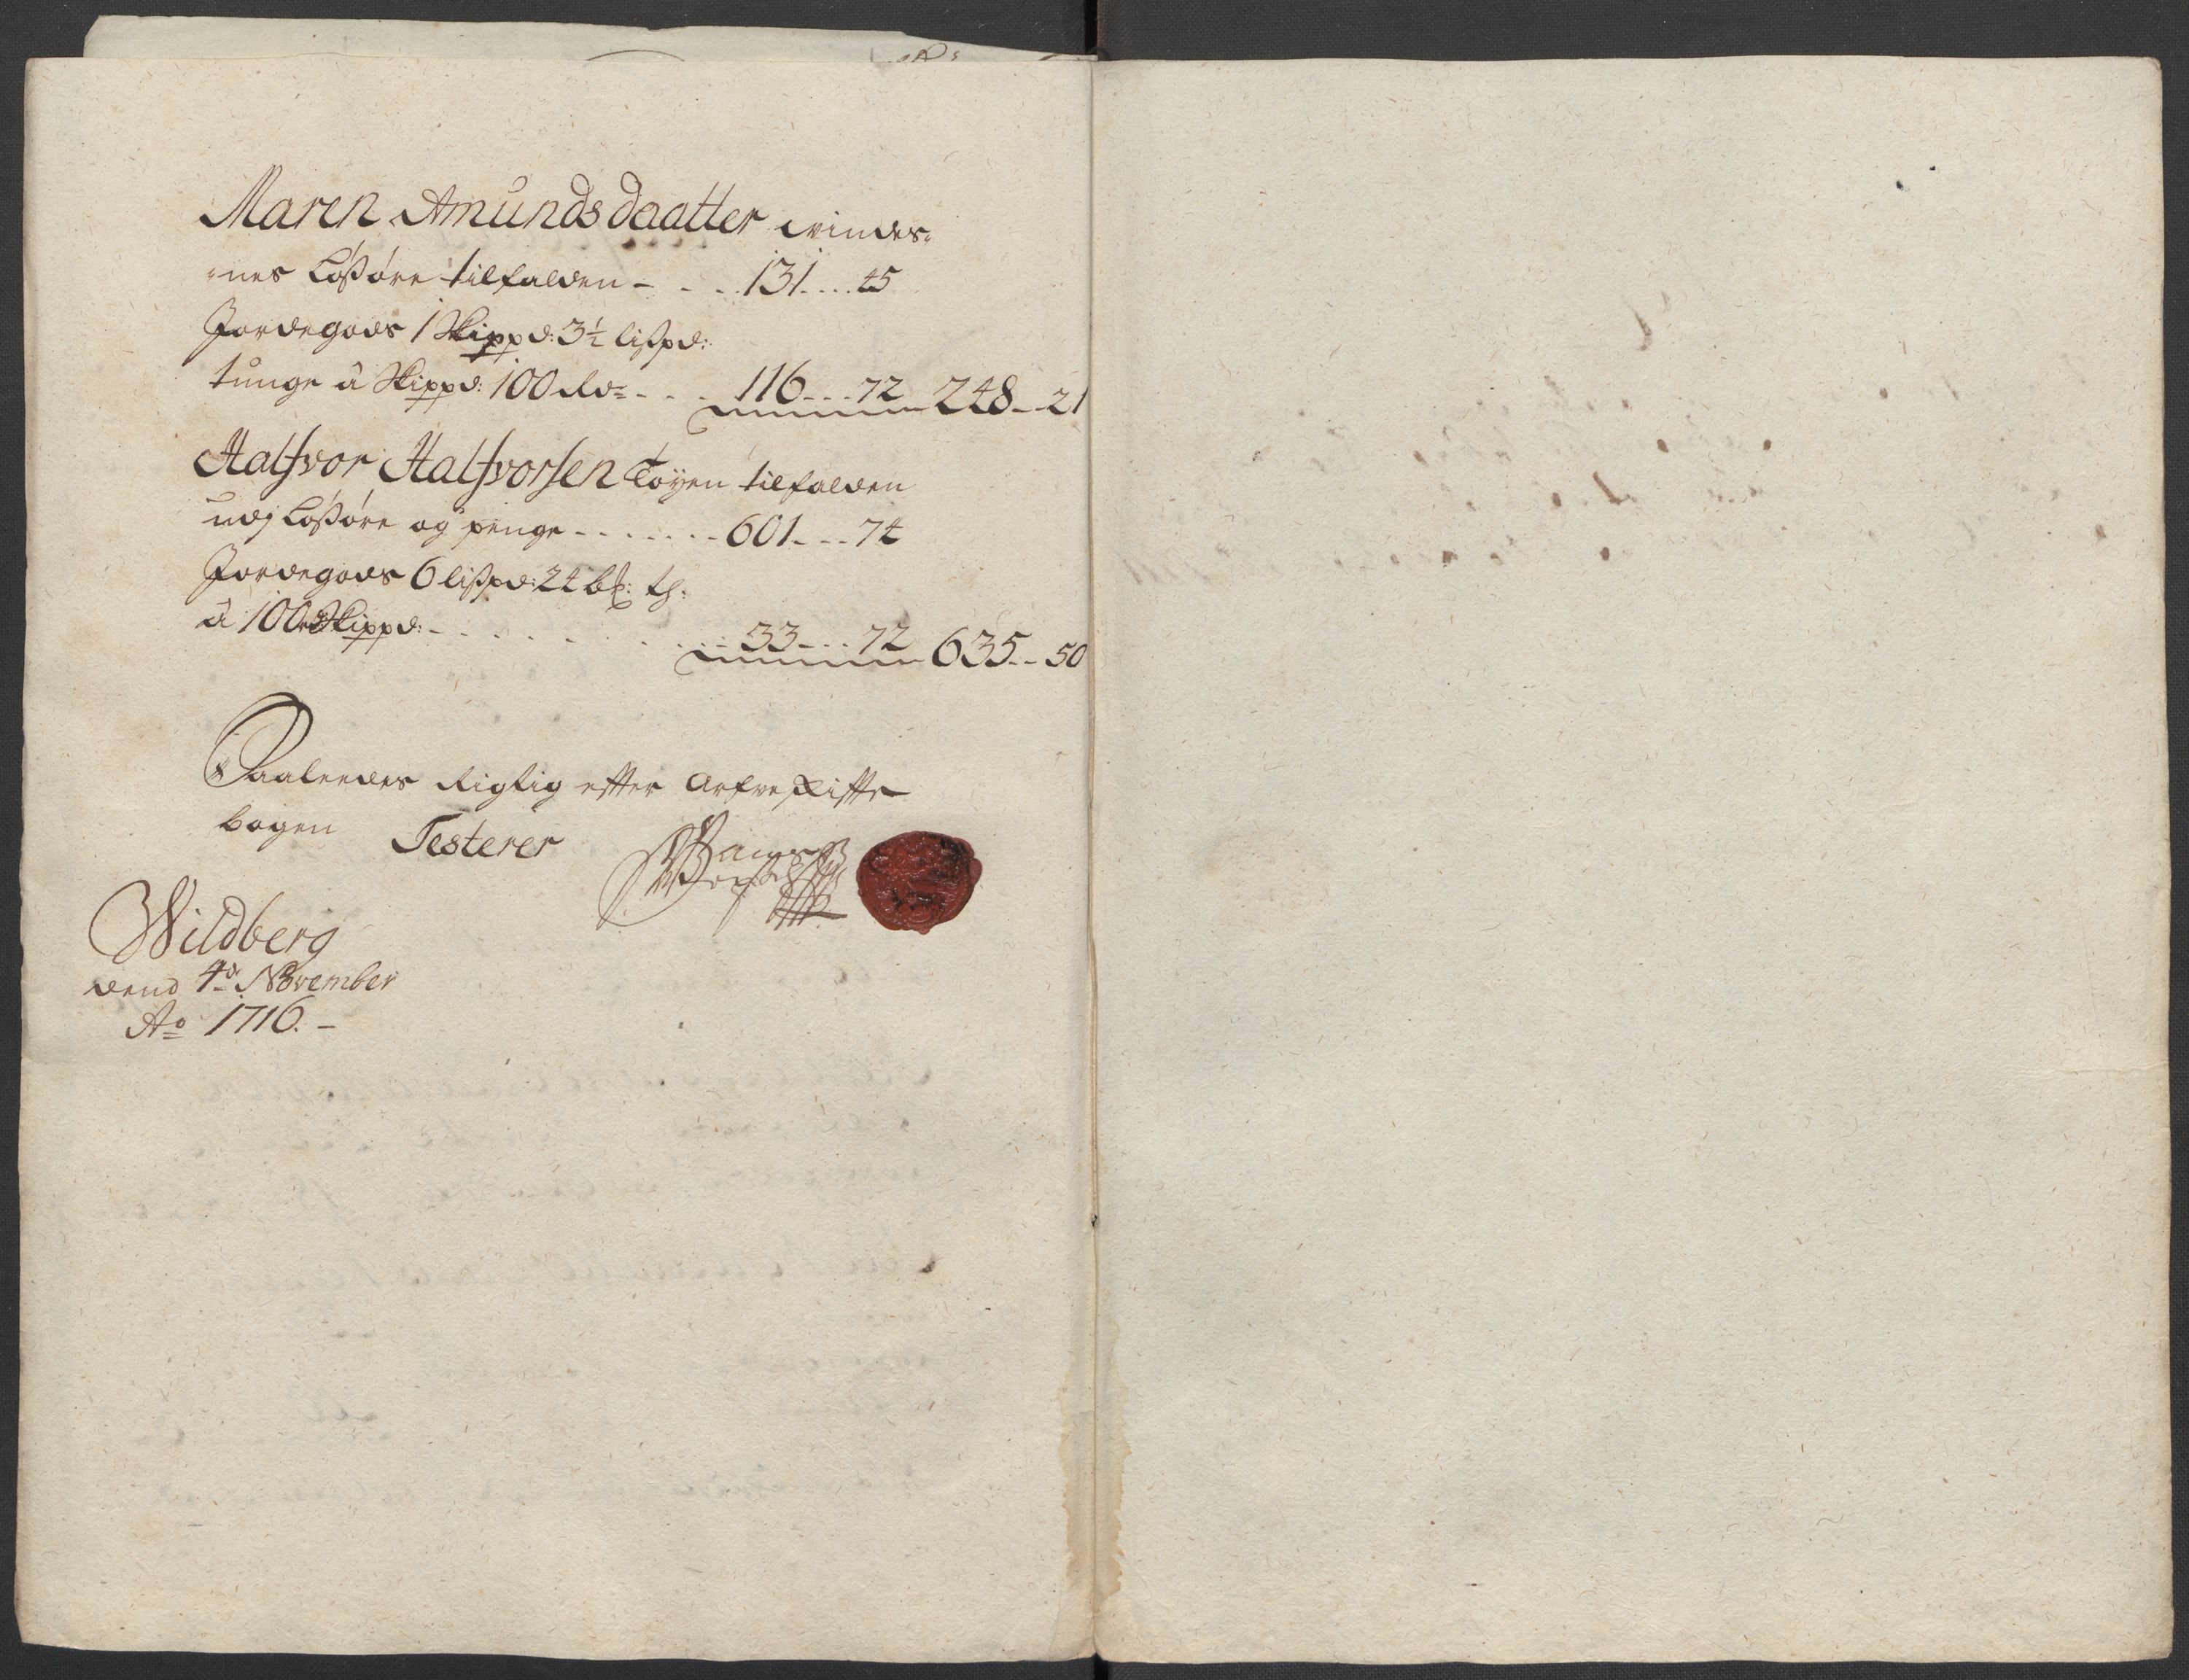 Maren Amunds daatter qvindes-
-nes Løsøre tilfalden - - - 131 - - - 45
Jordegods 1 Skippd: 3½ lispd:
tunge â Skippd: 100 Rdr - - - 116 - - - 72 248 - - 21
Halfvor Halfvorsen Tøyen tilfalden
udj Løsøre og penge - - - - - - - 601 - - - 74
Jordegods 6 lispd: 24 bs: th:
â 100 rd Skippd: - - - - - - - - 33 - - - 72 635 - - 50
Saaledes Rigtig efter Arfve skifte
bogen Testerer
Wildberg
dend 4de November
Ao 1716. -